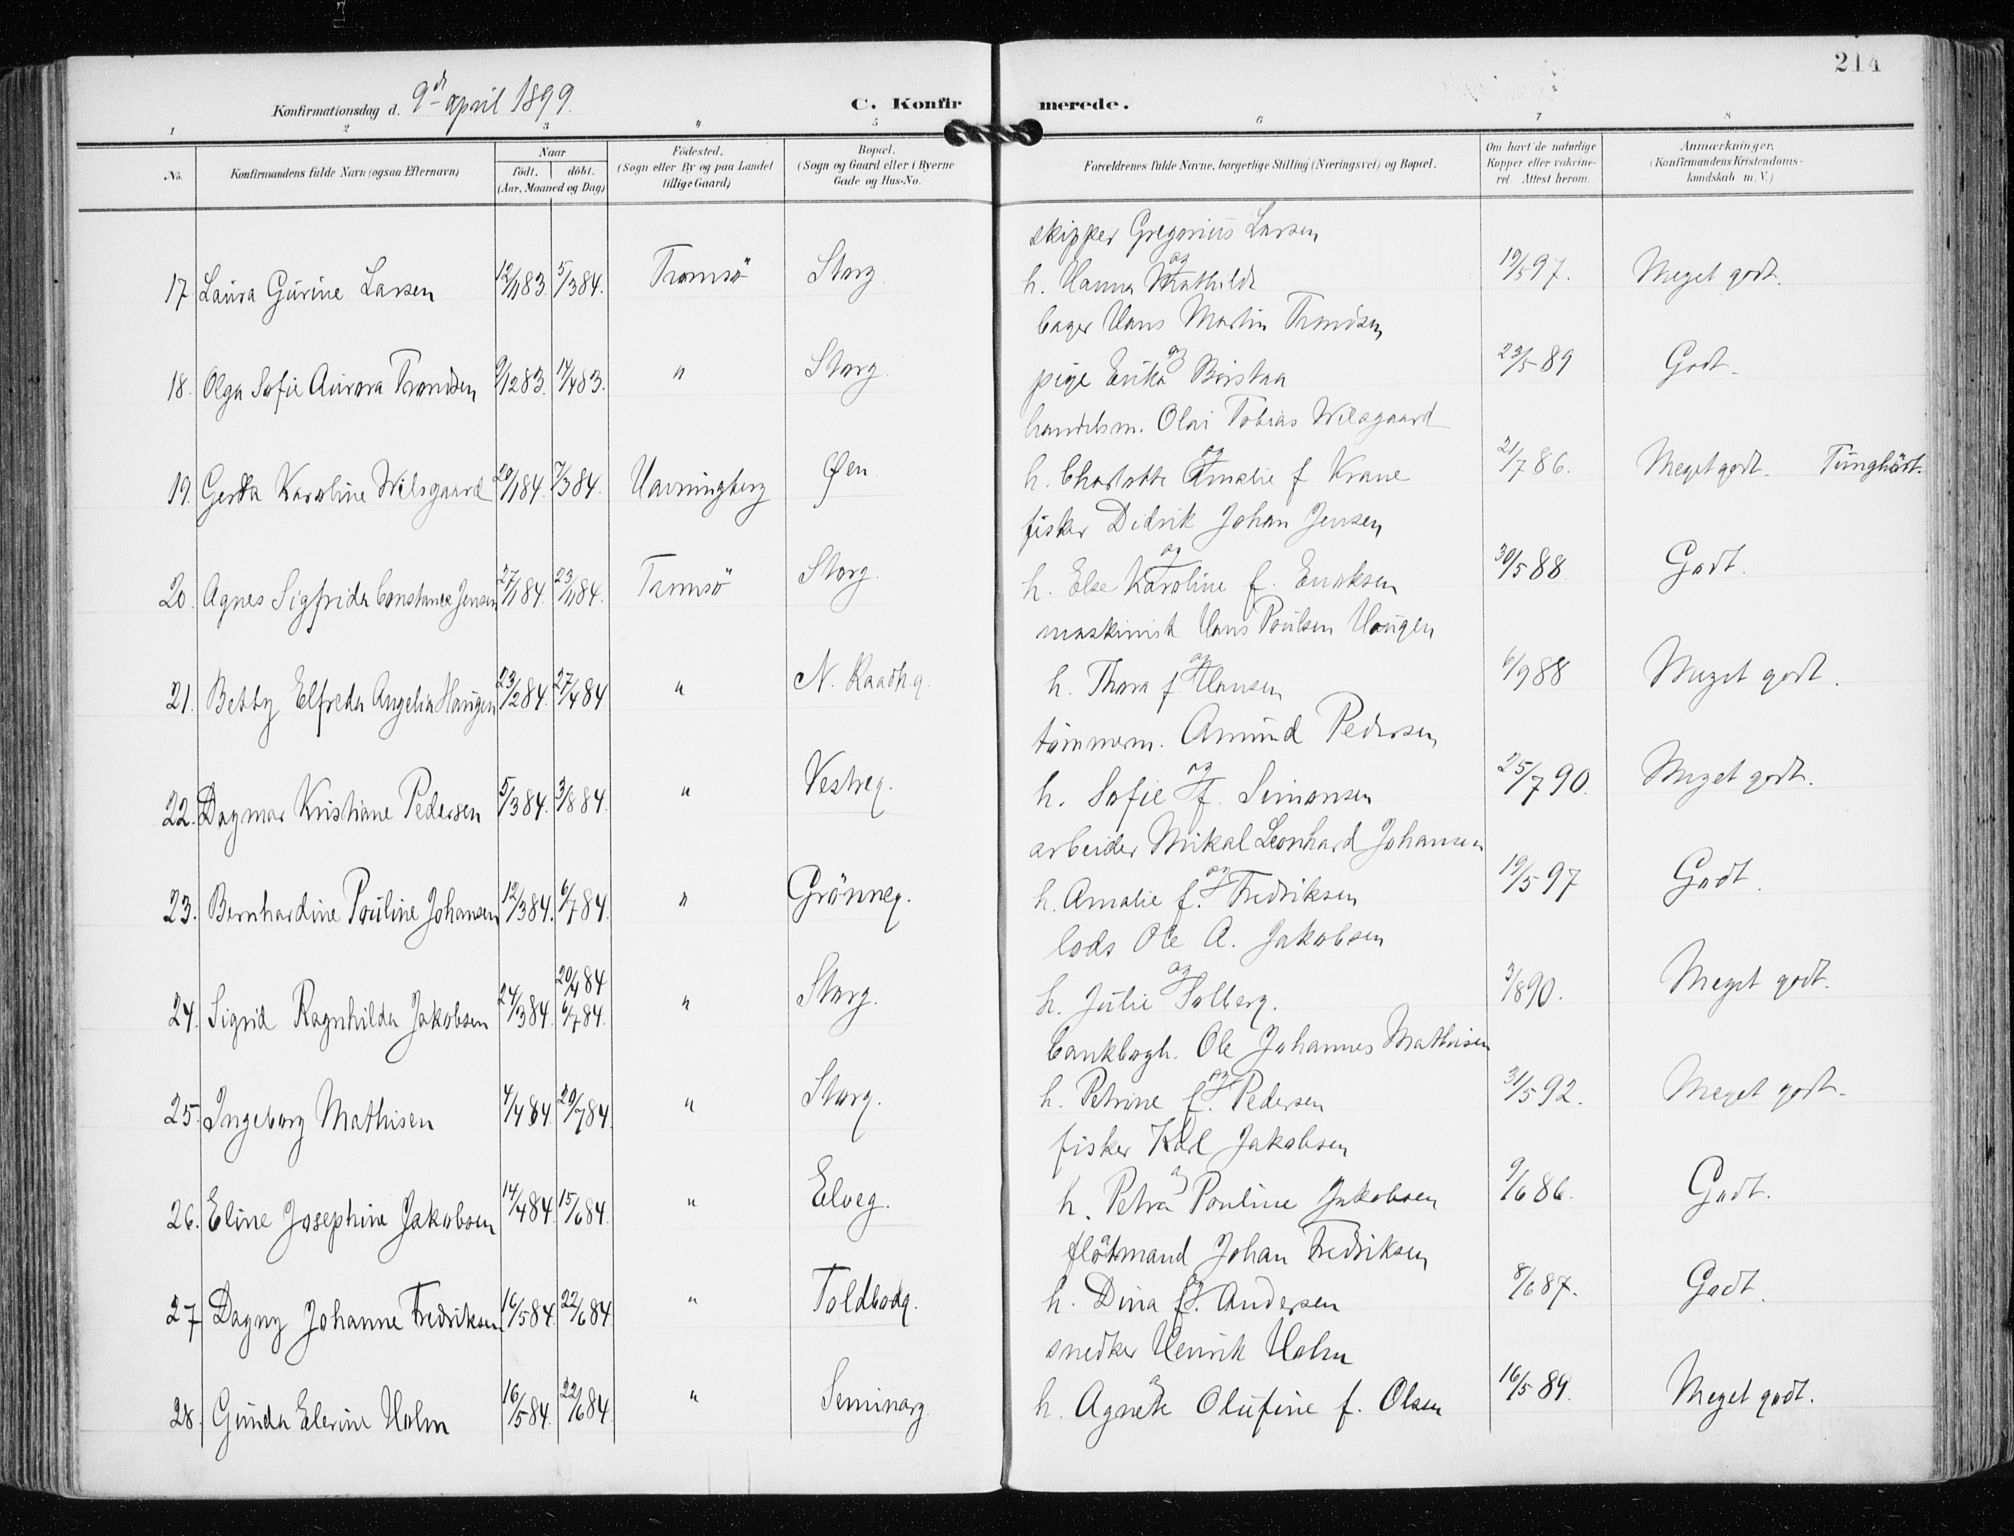 214
Konfirmationsdag d. 9de april 1899.
C. Konfirmerede.
1 2 3 " 5 6 7 8
No. Konfirmandens fulde Navn (ogsaa Efternavn) Naar født. døbt. (Aar, Maaned og Dag) Födested. (Sogn eller By og paa Landet tillige Gaard) Bopæl. (Sogn og Gaard eller i Byerne Gade og Hus-No. Forældrenes fulde Navne, borgerlige Stilling (Næringsvei) og Bopæl. Om havt de naturlige Kopper eller vaccineret Attest herom. Anmærkninger. (Konfirmandens Kristendomskundskab m. V.)
skipper Gregorius Larsen
17 Laura Gurine Larsen 12/11 83. 5/3 84. Tromsö Storg. og h. Hanna Mathilde 19/5 97. Meget godt.
bager Hans Martin Trondsen
18. Olga Sofie Aurora Trondsen 9/12 83. 17/4 83. " Storg. og pige Erika Borstaa 23/5 89 Godt.
handelsm. Olai Tobias Wilsgaard
19. Gerda Karoline Wilsgaard 20/1 84. 7/3 84. Havningberg Øen. og h. Charlotte Amalie f. Krane 21/7 86. Meget godt. Tunghørt.
fisker Didrik Johan Jensen
20. Agnes Sigfrida Constance Jensen 27/1 84. 23/11 84. Tromsö Storg. og h. Else Karoline f. Eriksen 30/5 88 Godt.
maskinist Hans Poulsen Haugen
21. Betty Elfreda Angelia Haugen 23/2 84. 27/4 84 " N. Raadhg. og h. Thora f. Hansen 6/9 88 Meget godt.
tømmerm. Amund Pedersen
22. Dagmar Kristiane Pedersen 5/3 84. 3/8 84 " Vestreg. og h. Sofie f. Simonsen 25/7 90. Meget godt.
arbeider Mikal Leonhard Johansen
23. Bernhardine Pouline Johansen 12/3 84. 6/7 84. " Grönneg. og h. Amalie f. Fredriksen 19/5 97 Godt.
lods Ole A. Jakobsen
24. Sigrid Ragnhilda Jakobsen 24/3 84. 20/4 84 6/7 84. " Storg. og h. Julie Solberg. 3/8 90. Meget godt.
bankbogh. Ole Johannes Mathisen
25. Ingeborg Mathisen 4/4 84 20/7 84. " Storg. og h. Petrine f. Pedersen 31/5 92. Meget godt.
fisker Karl Jakobsen
26. Eline Josephine Jakobsen 14/4 84 15/6 84. " Elveg. og h. Petra Pouline Jakobsen 9/6 86. Godt.
flötmand Johan Fredriksen
27 Dagny Johanne Fredriksen 16/5 84. 22/6 84 " Toldbodg. og h. Dina f. Andersen 8/6 87. Godt.
snedker Henrik Holm
28. Gunda Elerine Holm 16/5 84. 22/6 84 " Seminarg. og h. Agnete Olufine f. Olsen 16/5 89. Meget godt.